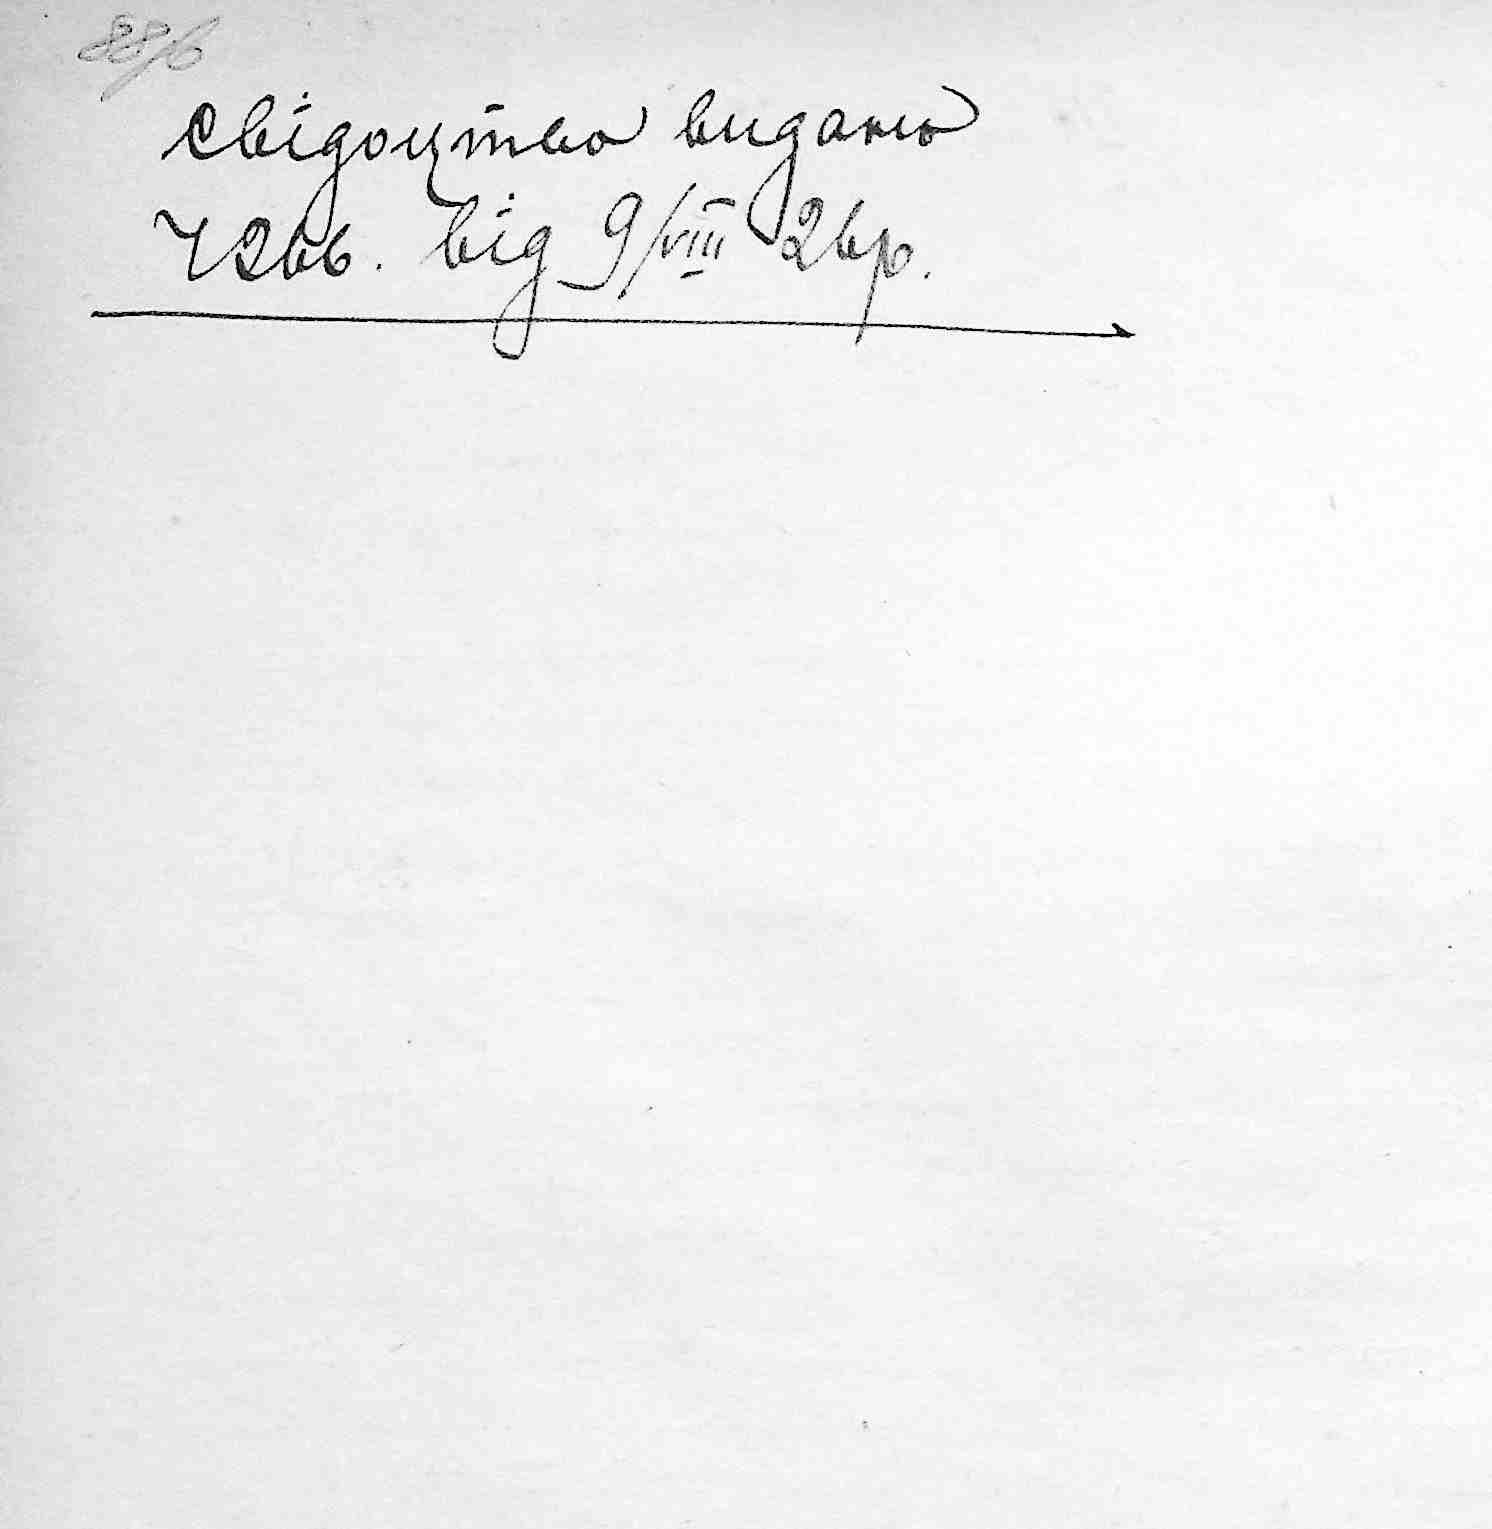 88зв
свідоцтво видано
7266. від 9/VIII 26р.